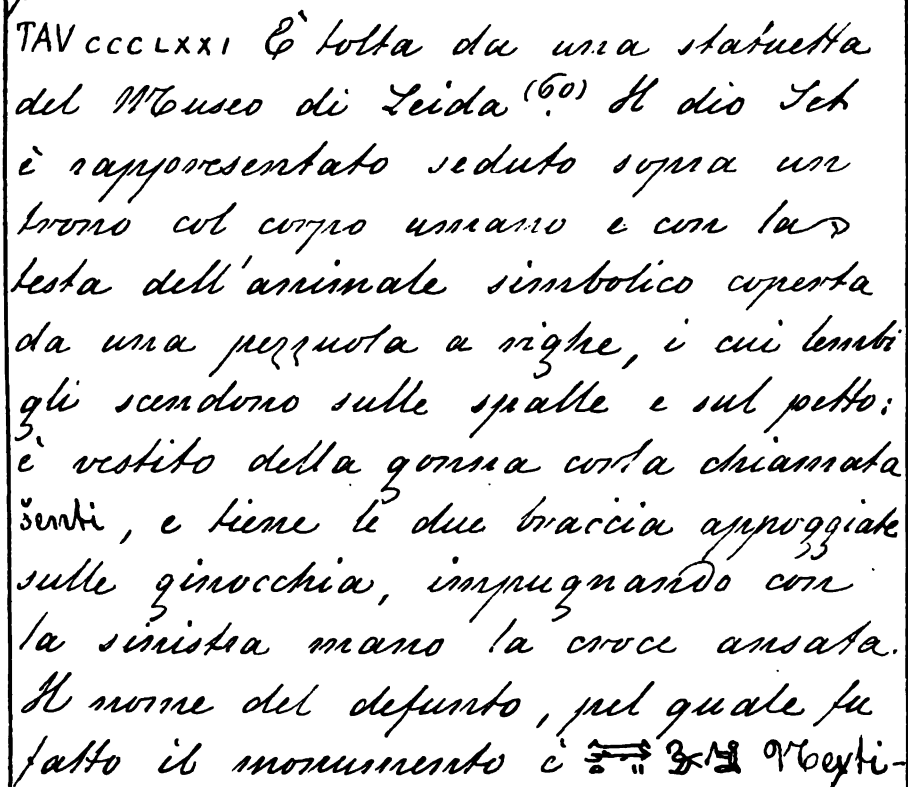 TAV CCCLXXI È tolta da una statuetta
del Museo di Leida (60). Il dio Set
è rappresentato seduto sopra un
trono col corpo umano e con la
testa dell'animale simbolico coperta
da una pezzuola a righe, i cui lembi
gli scendono sulle spalle e sul petto:
è vestito della gonna corta chiamata
šenti, e tiene le due braccia appoggiate
sulle ginocchia, impugnando con
la sinistra mano la croce ansata.
Il nome del defunto, pel quale fu
fatto il monumento è